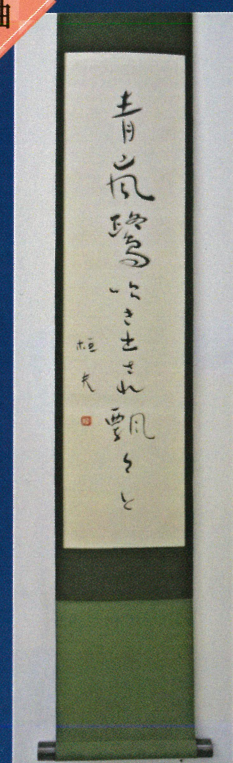 軸
青嵐鷺吹き出され飄々と
桓夫